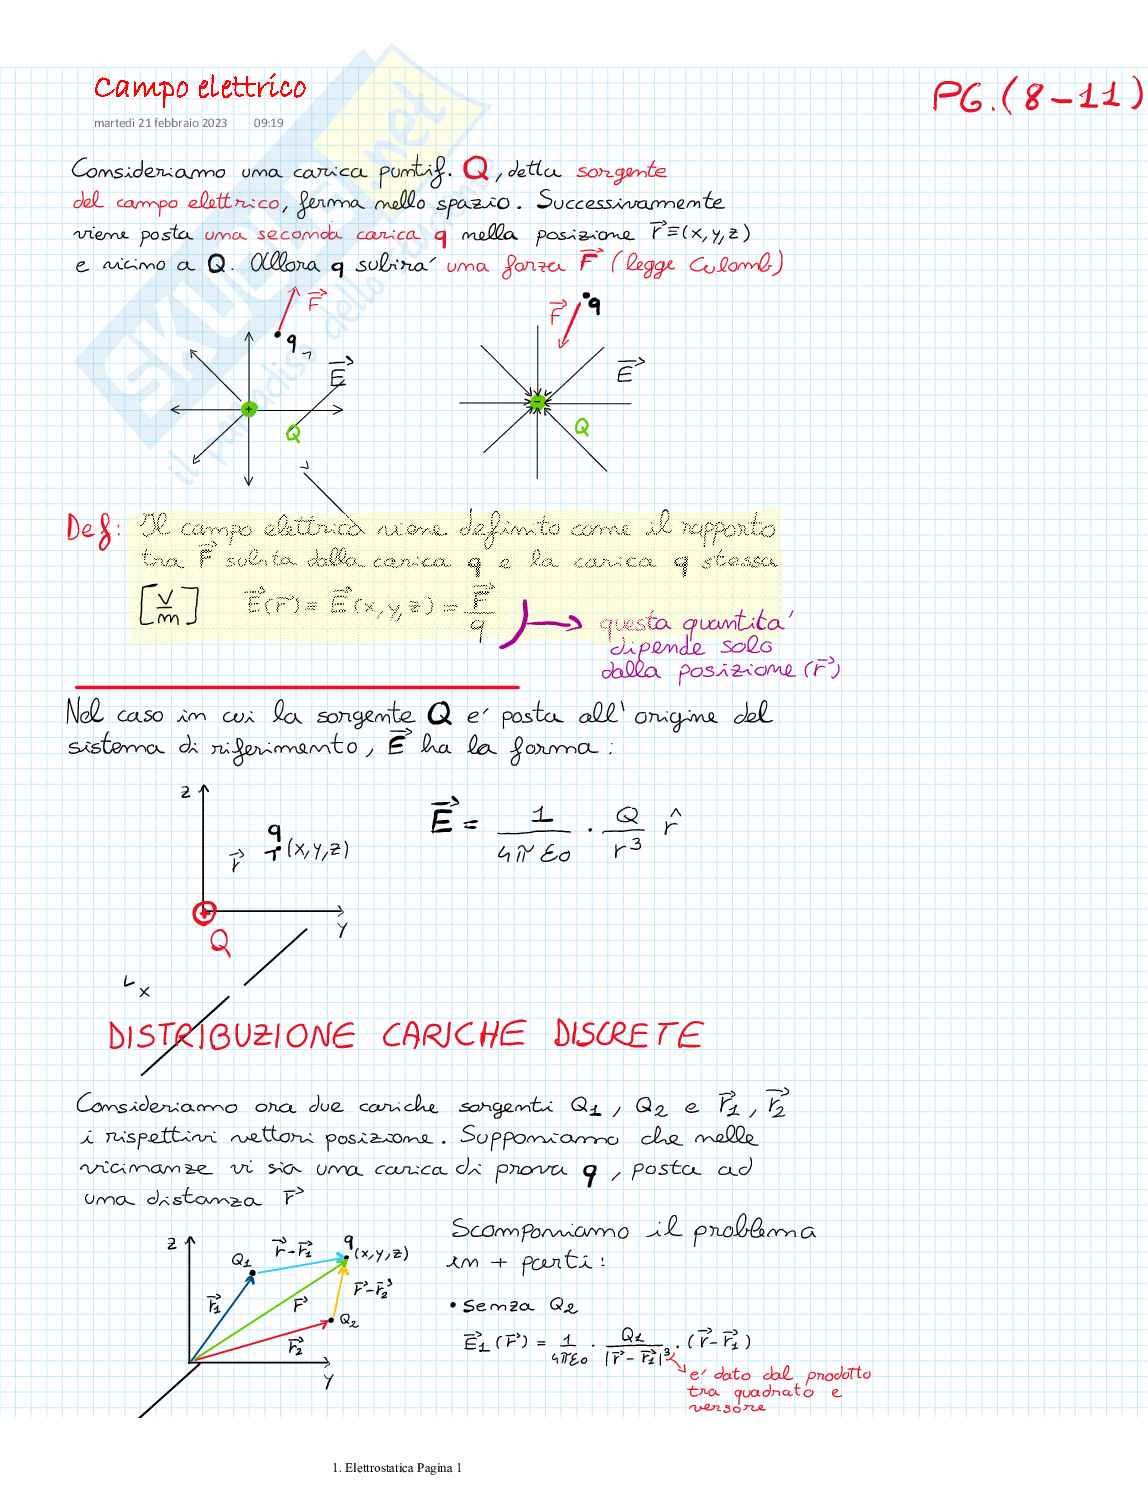 Campo elettrico
PG. (8-11)
martedì 21 febbraio 2023 09:19
Consideriamo una carica puntif. Q, detta sorgente
del campo elettrico, ferma nello spazio. Successivamente
viene posta una seconda carica q nella posizione r⃗≡(x,y,z)
e vicino a Q. Allora q subirá una forza F⃗ (legge Culomb)
F⃗
q
E⃗
+
Q
F⃗
q
E⃗
-
Q
Def: Il campo elettrico viene definito come il rapporto
tra F⃗ subita dalla carica q e la carica q stessa
[V/m] E⃗(r⃗) = E⃗(x,y,z) = F⃗/q
questa quantitá
dipende solo
dalla posizione (r⃗)
Nel caso in cui la sorgente Q é posta all'origine del
sistema di riferimento, E⃗ ha la forma:
z
q
r⃗ (x,y,z)
E⃗ = 1/4πε0 · Q/r³ r̂
+
y
Q
x
DISTRIBUZIONE CARICHE DISCRETE
Consideriamo ora due cariche sorgenti Q1, Q2 e r⃗1, r⃗2
i rispettivi vettori posizione. Supponiamo che nelle
vicinanze vi sia una carica di prova q, posta ad
una distanza r⃗
z
Q1
r⃗-r⃗1
q
(x,y,z)
r⃗1
r⃗
r⃗-r⃗2
Q2
r⃗2
y
Scomponiamo il problema
in + parti:
• senza Q2
E⃗1(r⃗) = 1/4πε0 · Q1/|r⃗-r⃗1|³ · (r⃗-r⃗1)
é dato dal prodotto
tra quadrato e
versore
SKUOLA.net
il paradiso dello studente
1. Elettrostatica Pagina 1